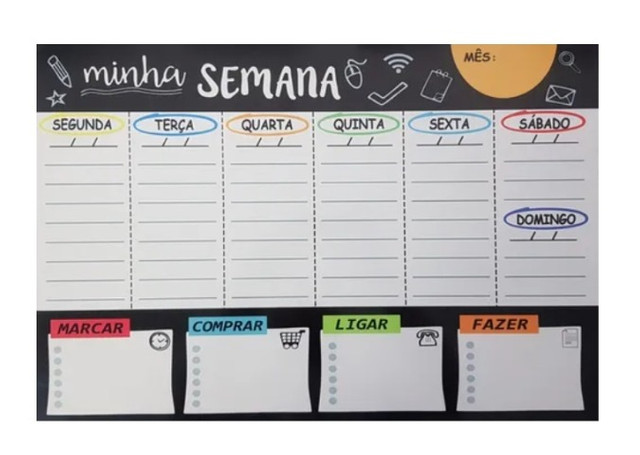 minha SEMANA
MÊS:
SEGUNDA
TERÇA
QUARTA
QUINTA
SEXTA
SÁBADO
/ /
/ /
/ /
/ /
/ /
/ /
DOMINGO
/ /
MARCAR
COMPRAR
LIGAR
FAZER